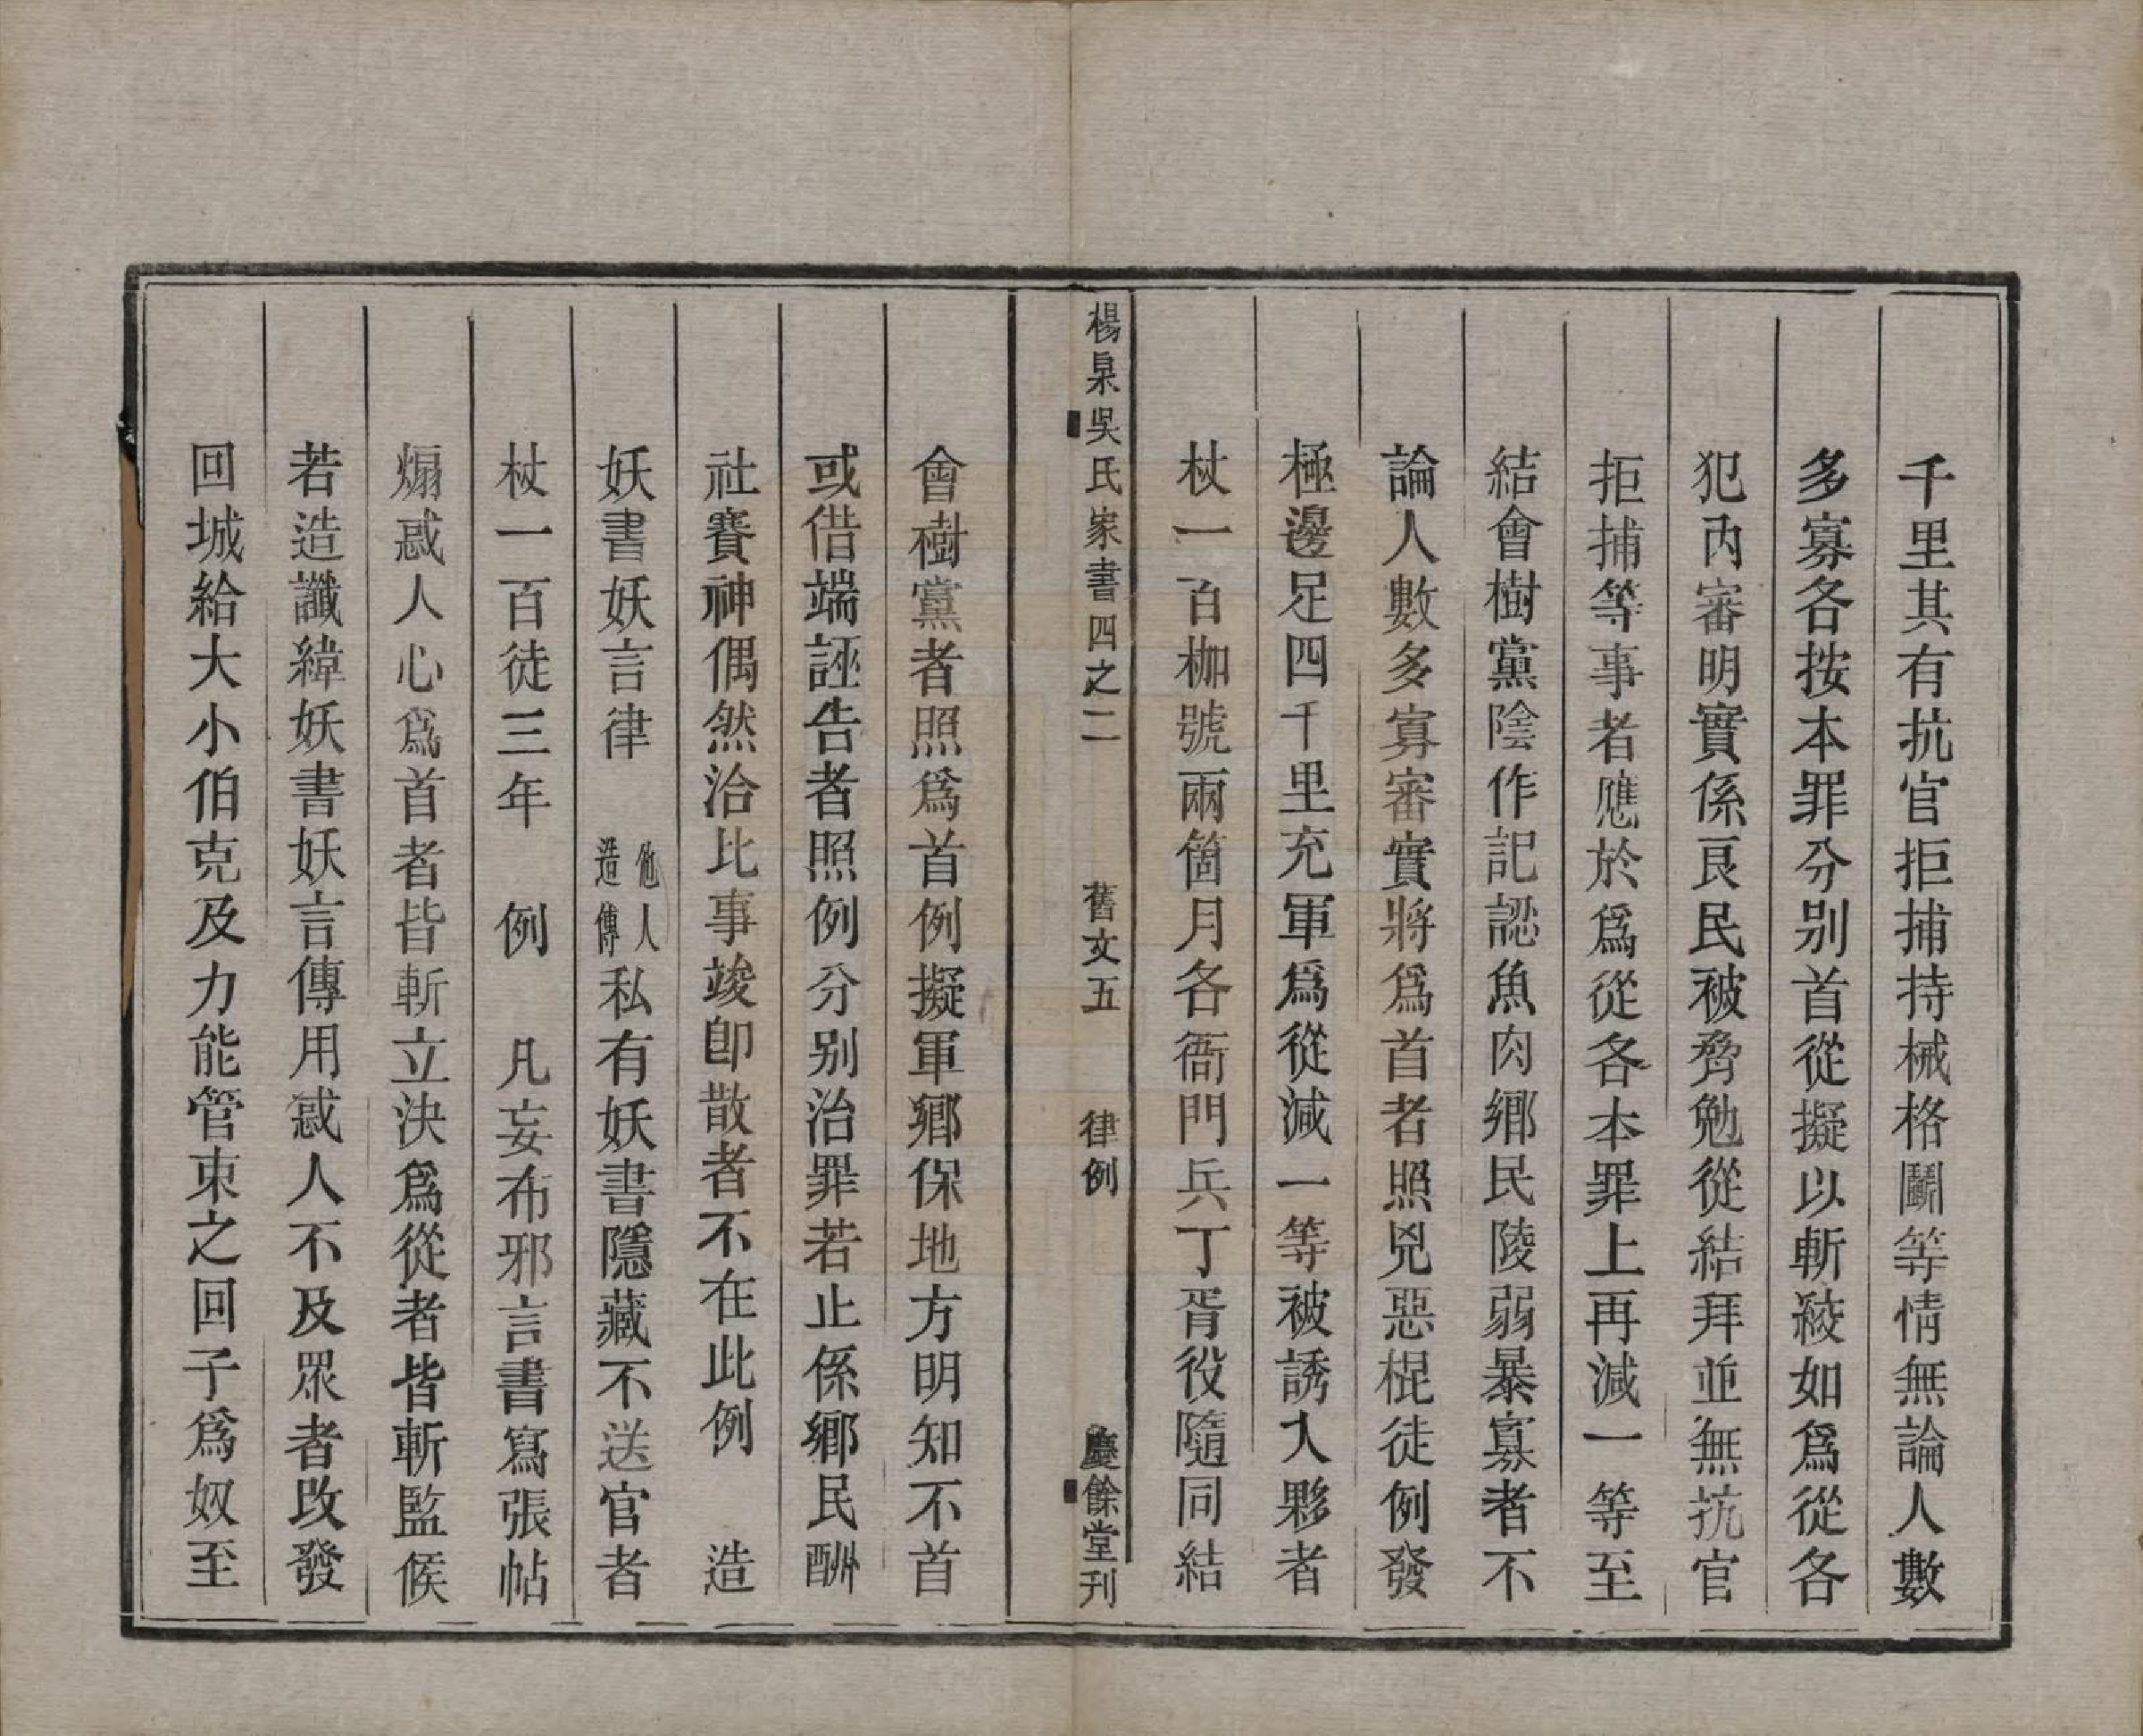 千里其有抗官拒捕持械格鬭等情無論人數
多寡各按本罪分别首從擬以斬絞如爲從各
犯內審明實係良民被脅勉從結拜並無抗官
拒捕等事者應於爲從各本罪上再減一等至
結會樹黨陰作記認魚肉鄉民陵弱暴寡者不
論人數多寡審實將爲首者照兇惡棍徒例發
極邊足四千里充軍爲從減一等被誘入夥者
杖一百枷號兩箇月各衙門兵丁胥役隨同結
楊泉吳氏家書四之二 舊文五 律例 慶餘堂刊
會樹黨者照爲首例擬軍鄉保地方明知不首
或借端誣告者照例分别治罪若止係鄉民酬
社賽神偶然洽比事竣卽散者不在此例 造
妖書妖言律 他人造傳私有妖書隱藏不送官者
杖一百徒三年 例 凡妄布邪言書寫張帖
煽惑人心爲首者皆斬立決爲從者皆斬監候
若造讖緯妖書妖言傳用惑人不及眾者改發
回城給大小伯克及力能管束之回子爲奴至